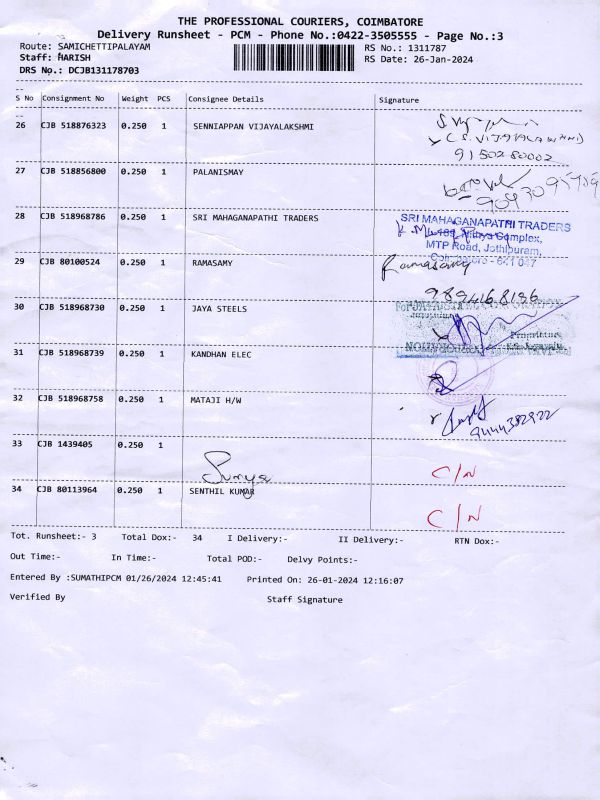 THE PROFESSIONAL COURIERS, COIMBATORE
Delivery Runsheet - PCM - Phone No.:0422-3505555 - Page No.:3
Route: SAMICHETTIPALAYAM RS No.: 1311787
Staff: HARISH RS Date: 26-Jan-2024
DRS No.: DCJB131178703
S No Consignment No Weight PCS Consignee Details Signature
26 CJB 518876323 0.250 1 SENNIAPPAN VIJAYALAKSHMI
9150280002
27 CJB 518856800 0.250 1 PALANISMAY
28 CJB 518968786 0.250 1 SRI MAHAGANAPATHI TRADERS SRI MAHAGANAPATHI TRADERS
Complex,
MTP Road, Jothipuram,
Coimbatore - 641 047
29 CJB 80100524 0.250 1 RAMASAMY Ramasamy
30 CJB 518968730 0.250 1 JAYA STEELS
Proprietor
31 CJB 518968739 0.250 1 KANDHAN ELEC
32 CJB 518968758 0.250 1 MATAJI H/W
33 CJB 1439405 0.250 1
Surya C/N
34 CJB 80113964 0.250 1 SENTHIL KUMAR C/N
Tot. Runsheet:- 3 Total Dox:- 34 I Delivery:- II Delivery:- RTN Dox:-
Out Time:- In Time:- Total POD:- Delvy Points:-
Entered By :SUMATHIPCM 01/26/2024 12:45:41 Printed On: 26-01-2024 12:16:07
Verified By Staff Signature